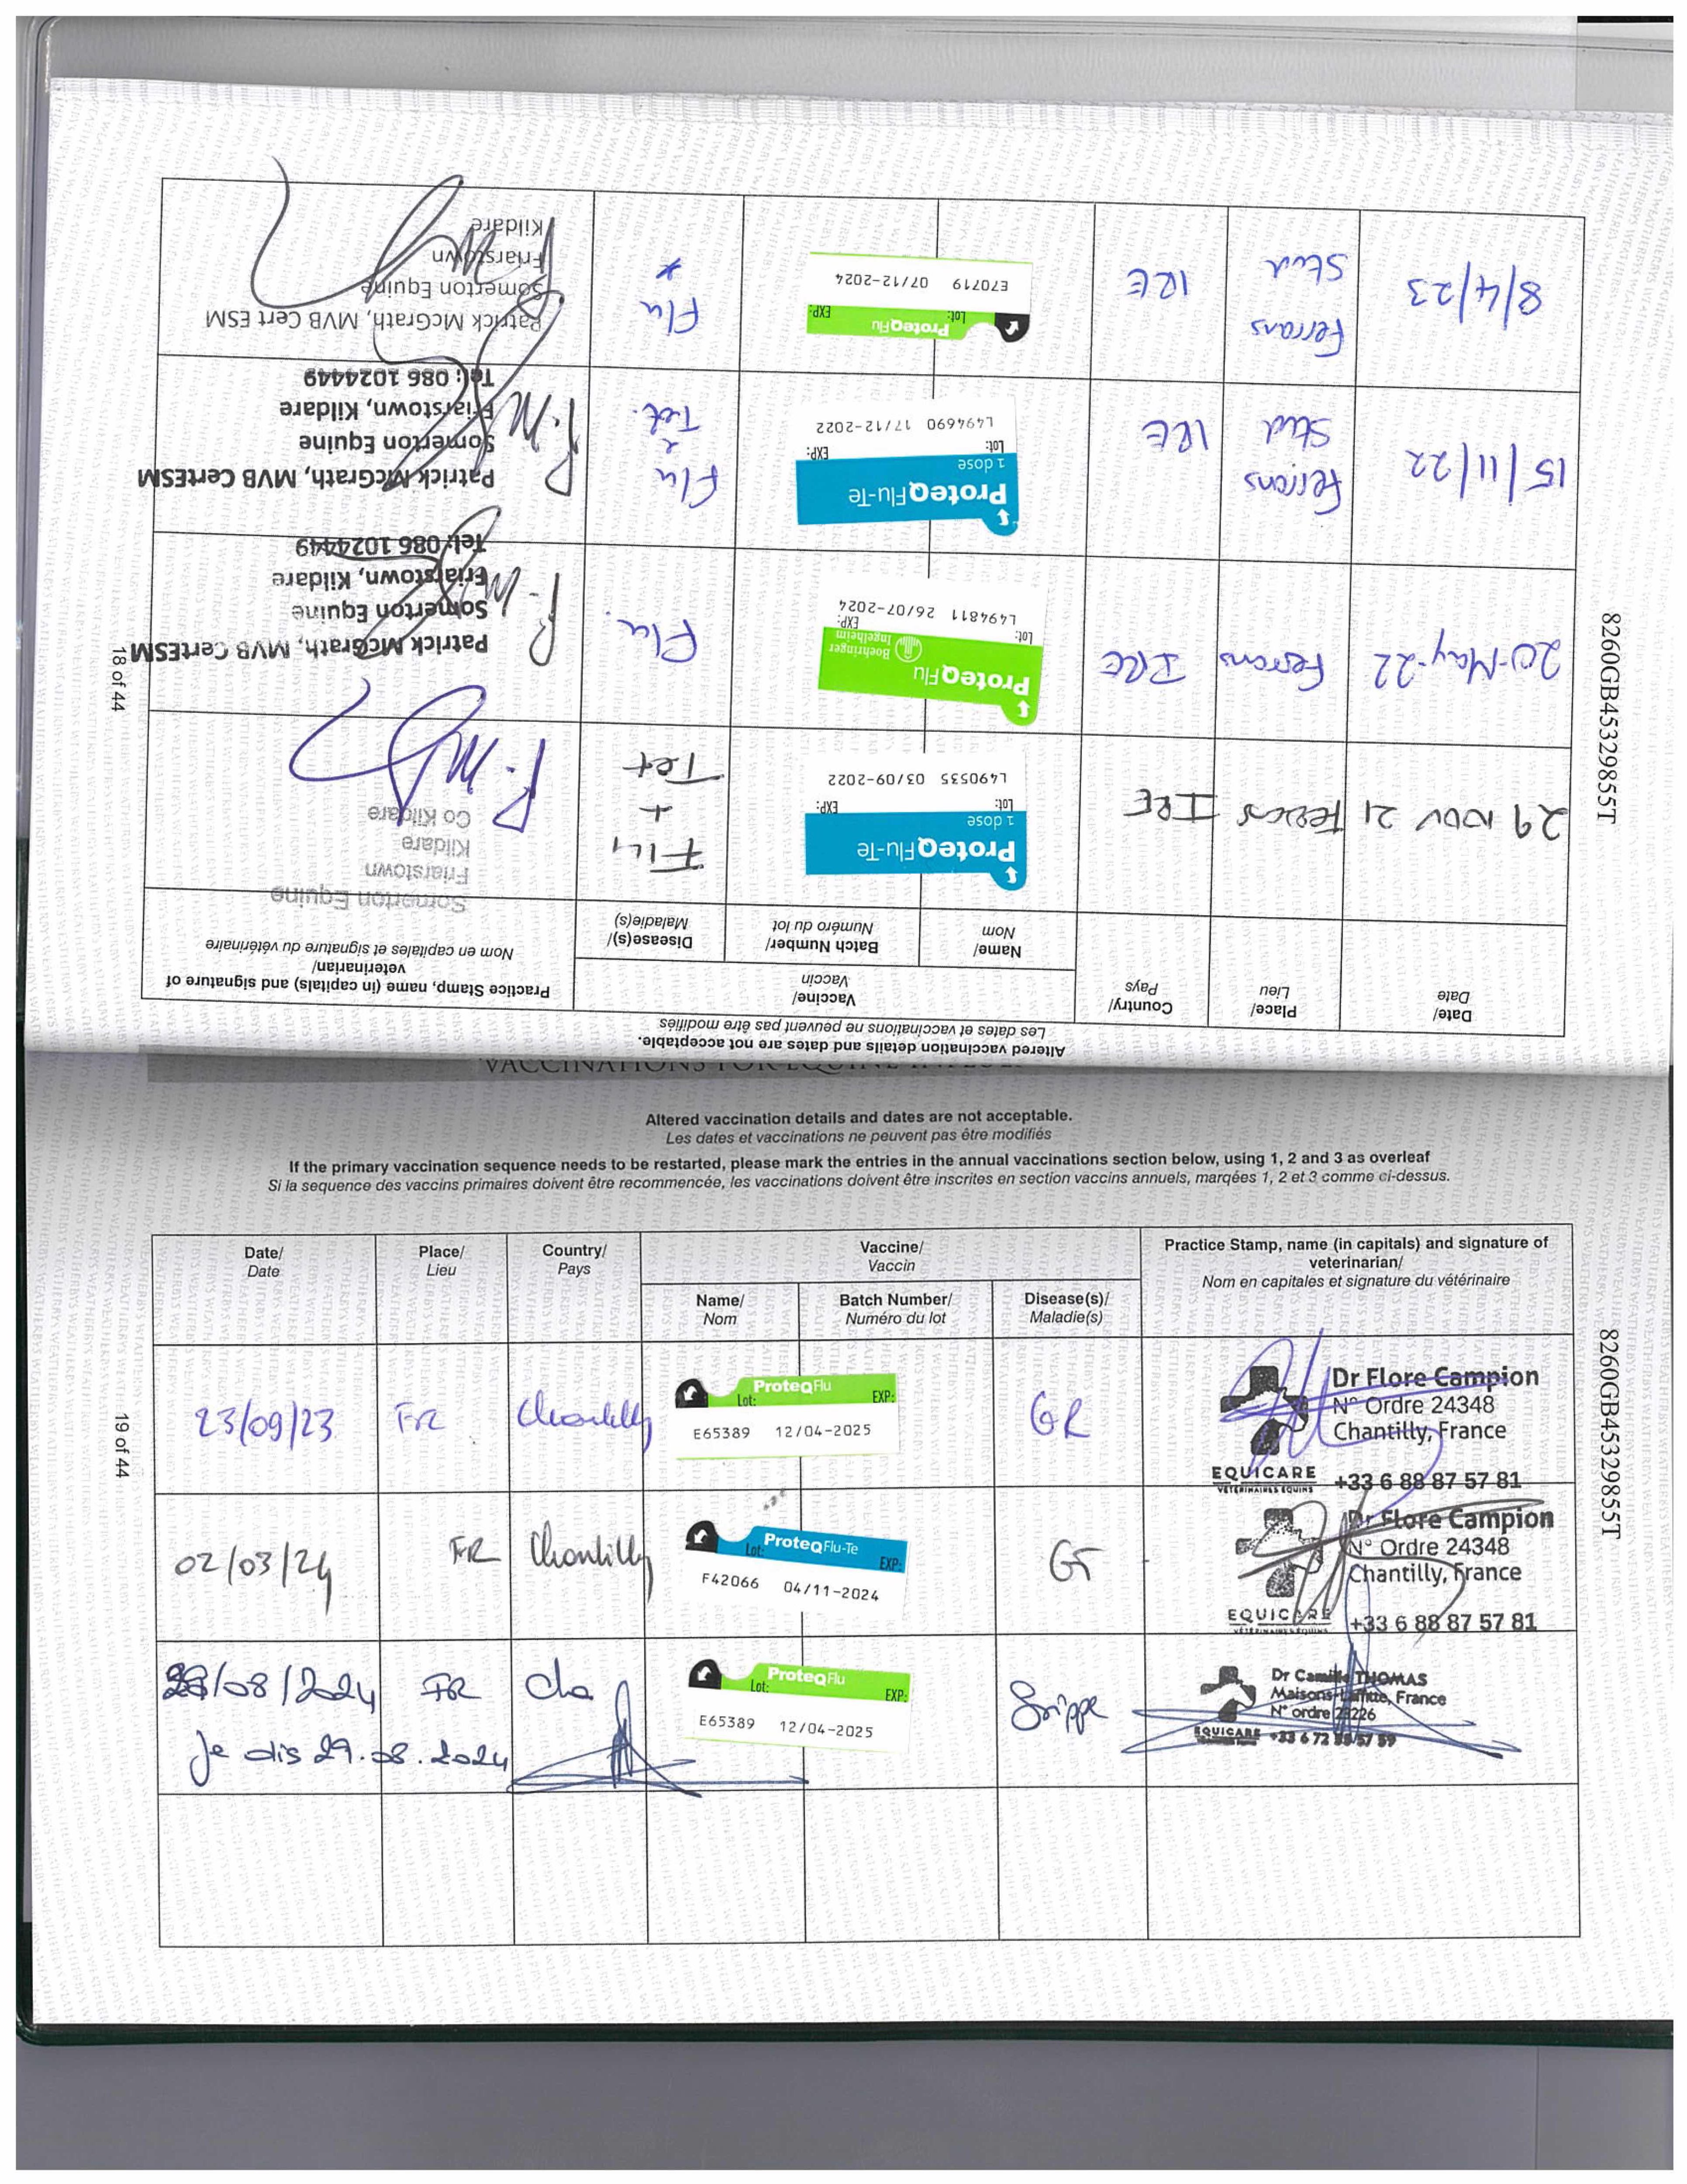 Altered vaccination details and dates are not acceptable.
Les dates et vaccinations ne peuvent pas être modifiés
Date/
Date
Place/
Lieu
Country/
Pays
Vaccine/
Vaccin
Name/
Nom
Batch Number/
Numéro du lot
Disease(s)/
Maladie(s)
Practice Stamp, name (in capitals) and signature of
veterinarian/
Nom en capitales et signature du vétérinaire
29 NOV 21
IRE
ProteqFlu-Te
1 dose
Lot: EXP:
L490535 03/09-2022
Flu
+
Tet
Somerton Equine
Friarstown
Kildare
Co Kildare
20-May-22
Ferrans
IRE
ProteqFlu
Boehringer
Ingelheim
Lot: EXP:
L494811 26/07-2024
Flu.
Patrick McGrath, MVB CertESM
Somerton Equine
Friarstown, Kildare
Tel: 086 1024449
15/11/22
Ferrans
Stud
IRE
ProteqFlu-Te
1 dose
Lot: EXP:
L494690 17/12-2022
Flu
&
Tet.
Patrick McGrath, MVB CertESM
Somerton Equine
Friarstown, Kildare
Tel: 086 1024449
8/4/23
Ferrans
Stud
IRE
ProteqFlu
Lot: EXP:
E70719 07/12-2024
Flu
*
Patrick McGrath, MVB Cert ESM
Somerton Equine
Friarstown
Kildare
18 of 44
8260GB45329855T
Altered vaccination details and dates are not acceptable.
Les dates et vaccinations ne peuvent pas être modifiés
If the primary vaccination sequence needs to be restarted, please mark the entries in the annual vaccinations section below, using 1, 2 and 3 as overleaf
Si la sequence des vaccins primaires doivent être recommencée, les vaccinations doivent être inscrites en section vaccins annuels, marqées 1, 2 et 3 comme ci-dessus.
Date/
Date
Place/
Lieu
Country/
Pays
Vaccine/
Vaccin
Name/
Nom
Batch Number/
Numéro du lot
Disease(s)/
Maladie(s)
Practice Stamp, name (in capitals) and signature of
veterinarian/
Nom en capitales et signature du vétérinaire
23/09/23
FR
Chantilly
ProteqFlu
Lot: EXP:
E65389 12/04-2025
GR
Dr Flore Campion
N° Ordre 24348
Chantilly, France
EQUICARE
VÉTÉRINAIRES ÉQUINS
+33 6 88 87 57 81
02/03/24
FR
Chantilly
ProteqFlu-Te
Lot: EXP:
F42066 04/11-2024
GT
Dr Flore Campion
N° Ordre 24348
Chantilly, France
EQUICARE
VÉTÉRINAIRES ÉQUINS
+33 6 88 87 57 81
/08/2024
FR
Cha
ProteqFlu
Lot: EXP:
E65389 12/04-2025
Grippe
Dr Camille THOMAS
Maisons-Laffitte, France
N° ordre
EQUICARE
Je dis 29.08.2024
19 of 44
8260GB45329855T